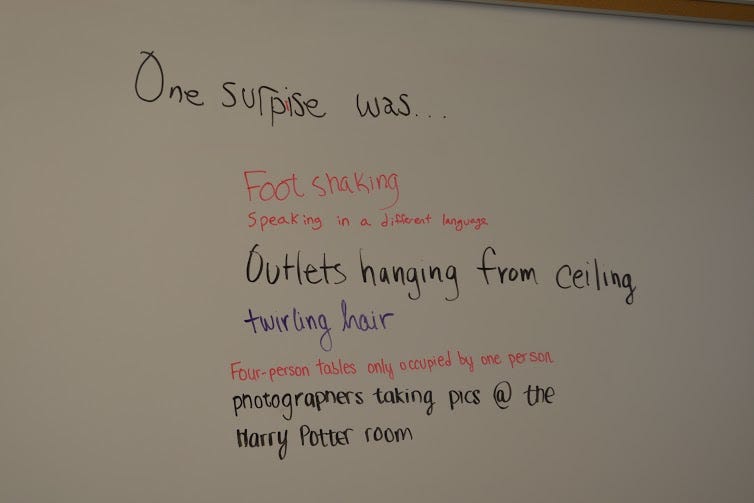 One surpise was...
Foot shaking
Speaking in a different language
Outlets hanging from ceiling
twirling hair
Four-person tables only occupied by one person
photographers taking pics @ the
Harry Potter room